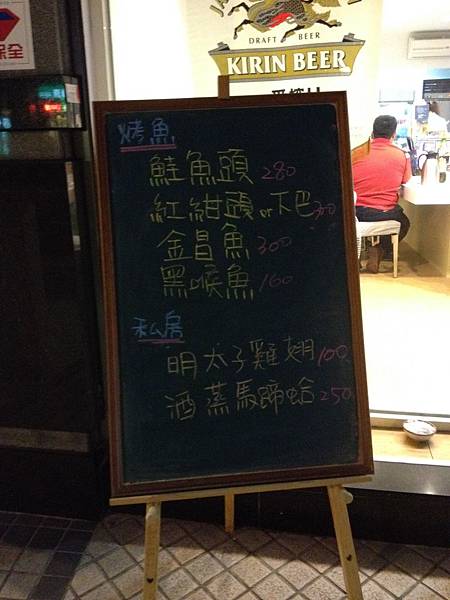 保全
DRAFT BEER
KIRIN BEER
烤魚
鮭魚頭 280
紅紺頭 or 下巴 300
金昌魚 300
黑喉魚 160
私房
明太子雞翅 100
酒蒸馬蹄蛤 250